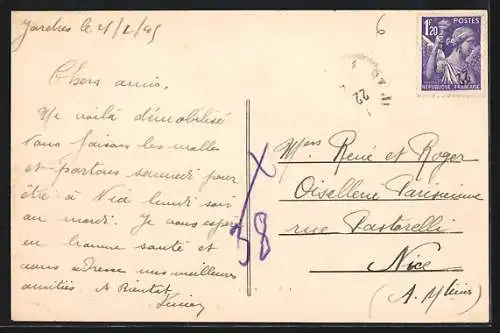 Chers amis.
Me voilà démobilisé
nous faisons les malles
et partons samedi pour
être à Nice lundi soir
ou mardi. Je vous espère
en bonne santé et
vous adresse nos meilleures
amitiés. A Bientôt
1F,20
POSTES
REPUBLIQUE FRANÇAISE
22
6
38
Mrs René et Roger
Oisellerie Parisienne
rue Pastorelli
Nice
(A. Mmes)